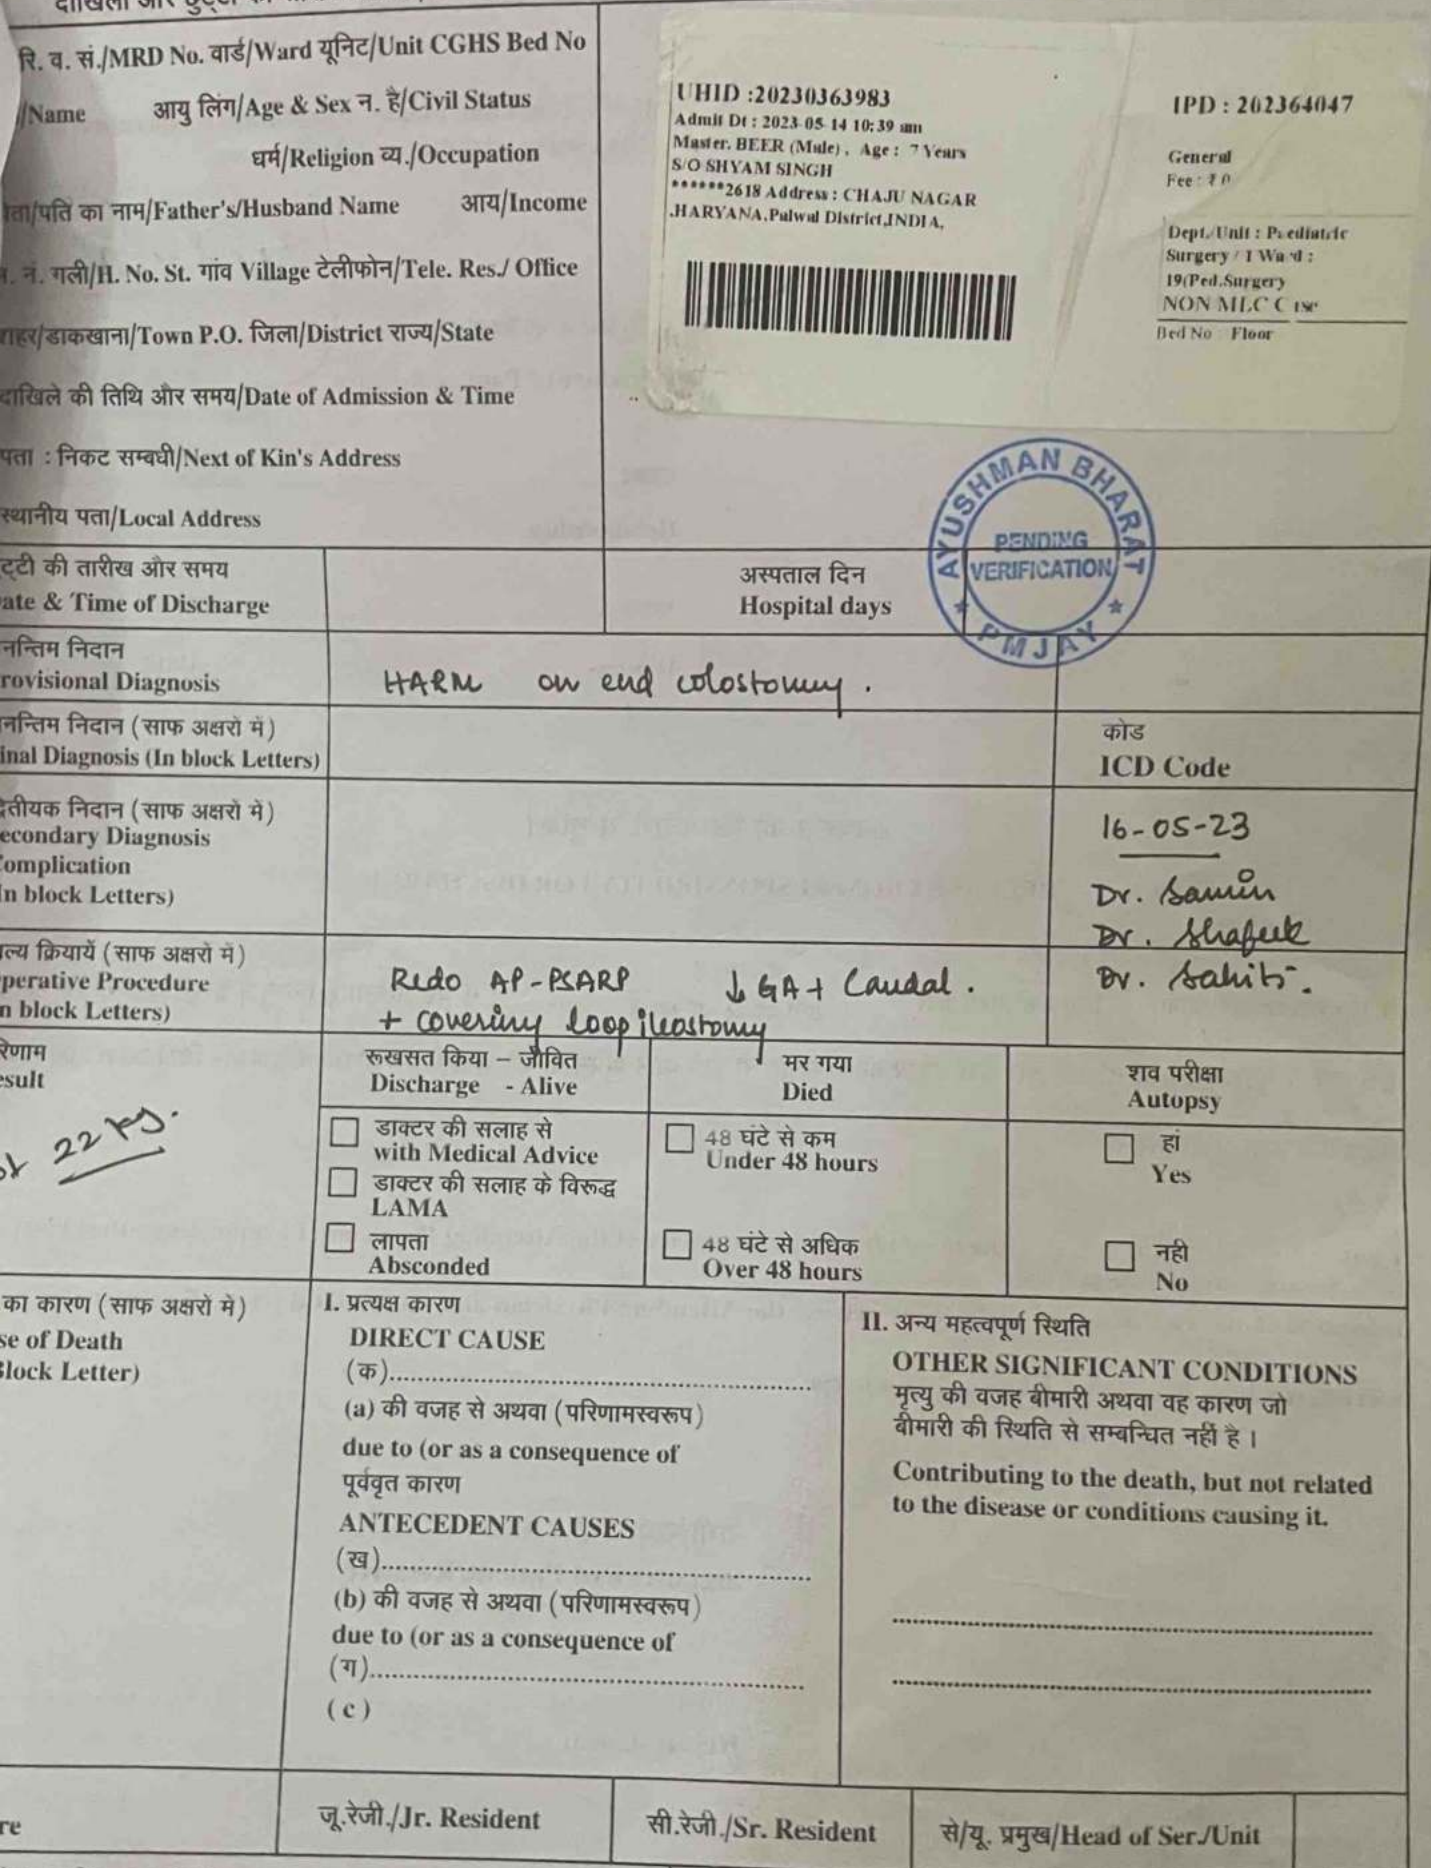 रि. व. सं./MRD No. वार्ड/Ward यूनिट/Unit CGHS Bed No
/Name आयु लिंग/Age & Sex न. है/Civil Status
धर्म/Religion व्य./Occupation
ता/पति का नाम/Father's/Husband Name आय/Income
. नं. गली/H. No. St. गांव Village टेलीफोन/Tele. Res./ Office
शहर/डाकखाना/Town P.O. जिला/District राज्य/State
दाखिले की तिथि और समय/Date of Admission & Time
पता : निकट सम्बधी/Next of Kin's Address
स्थानीय पता/Local Address
UHID :20230363983
Admit Dt : 2023-05-14 10:39 am
Master. BEER (Male) , Age : 7 Years
S/O SHYAM SINGH
******2618 Address : CHAJU NAGAR
,HARYANA,Palwal District,INDIA,
IPD : 202364047
General
Fee : ₹ 0
Dept./Unit : Paediatric
Surgery / I Ward :
19(Ped.Surgery
NON MLC Case
Bed No : Floor
AYUSHMAN BHARAT
PENDING
VERIFICATION
★ PMJAY ★
ट्टी की तारीख और समय
ate & Time of Discharge
अस्पताल दिन
Hospital days
नन्तिम निदान
rovisional Diagnosis
HARM on end colostomy .
नन्तिम निदान (साफ अक्षरों में)
inal Diagnosis (In block Letters)
कोड
ICD Code
द्वेतीयक निदान (साफ अक्षरों में)
econdary Diagnosis
omplication
n block Letters)
16-05-23
Dr. Samin
Dr. Shafeek
Dr. Sahiti.
ल्य क्रियायें (साफ अक्षरों में)
perative Procedure
n block Letters)
Redo AP-PSARP ↓ GA + Caudal .
+ covering loop ileostomy
रिणाम
esult
22 kg.
रूखसत किया – जीवित
Discharge - Alive
मर गया
Died
शव परीक्षा
Autopsy
डाक्टर की सलाह से
with Medical Advice
डाक्टर की सलाह के विरूद्ध
LAMA
लापता
Absconded
48 घंटे से कम
Under 48 hours
48 घंटे से अधिक
Over 48 hours
हां
Yes
नही
No
का कारण (साफ अक्षरों में)
se of Death
Block Letter)
I. प्रत्यक्ष कारण
DIRECT CAUSE
(क)..........
(a) की वजह से अथवा (परिणामस्वरूप)
due to (or as a consequence of
पूर्ववृत कारण
ANTECEDENT CAUSES
(ख)..........
(b) की वजह से अथवा (परिणामस्वरूप)
due to (or as a consequence of
(ग)..........
(c)
II. अन्य महत्वपूर्ण स्थिति
OTHER SIGNIFICANT CONDITIONS
मृत्यु की वजह बीमारी अथवा वह कारण जो
बीमारी की स्थिति से सम्बन्धित नहीं है ।
Contributing to the death, but not related
to the disease or conditions causing it.
re
जू.रेजी./Jr. Resident
सी.रेजी./Sr. Resident
से/यू. प्रमुख/Head of Ser./Unit